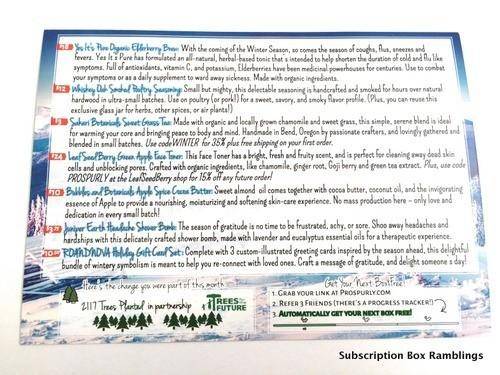 $18 Yes It's Pure Organic Elderberry Brew: With the coming of the Winter Season, so comes the season of coughs, flus, sneezes and
fevers. Yes It's Pure has formulated an all-natural, herbal-based tonic that's intended to help shorten the duration of cold and flu like
symptoms. Full of antioxidants, vitamin C, and potassium, Elderberries have been medicinal powerhouses for centuries. Use to combat
your symptoms or as a daily supplement to ward away sickness. Made with organic ingredients.
$12 Whiskey Oak Smoked Poultry Seasoning: Small but mighty, this delectable seasoning is handcrafted and smoked for hours over natural
hardwood in ultra-small batches. Use on poultry (or pork!) for a sweet, savory, and smoky flavor profile. (Plus, you can reuse this
exclusive glass jar for herbs, other spices, or in planters!)
Sakari Botanicals Sweet Grass Tea: Made with organic and locally grown chamomile and sweet grass, this simple, serene blend is ideal
for warming your core and bringing peace to body and mind. Handmade in Bend, Oregon by passionate crafters, and lovingly gathered and
blended in small batches. Use code WINTER for 35% plus free shipping on your first order.
$24 Leaf Seed Berry Green Apple Face Toner: This Face Toner has a bright, fresh and fruity scent, and is perfect for clearing away dead skin
cells and unblocking pores. Crafted with organic ingredients, like chamomile, ginger root, Goji berry and green tea extract. Plus, use code
PROSPURLY at the LeafSeedBerry shop for 15% off any future order!
$10 Bubbles and Botanicals Apple Spice Cocoa Butter: Sweet almond oil comes together with cocoa butter, coconut oil, and the invigorating
essence of Apple to provide a nourishing, moisturizing and softening skin-care experience. No mass production here – only love and
dedication in every small batch!
Juniper Earth Headache Shower Bomb: The season of gratitude is no time to be frazzled, achy, or sore. Shoo away headaches and
hardships with this delicately crafted shower bomb, made with lavender and eucalyptus essential oils for a therapeutic experience.
Holiday Gift Card Set: Complete with 3 custom-illustrated greeting cards inspired by the season ahead, this delightful
bundle of wintery symbolism is meant to help you re-connect with loved ones. Craft a message of gratitude, and delight someone's day!
Here's the change you were part of this month
2117 Trees Planted in partnership
TREES
FOR THE
FUTURE
Get Your Next Box Free!
1. GRAB YOUR LINK AT PROSPURLY.COM
2. REFER 3 FRIENDS (THERE'S A PROGRESS TRACKER!)
3. AUTOMATICALLY GET YOUR NEXT BOX FREE!
Subscription Box Ramblings